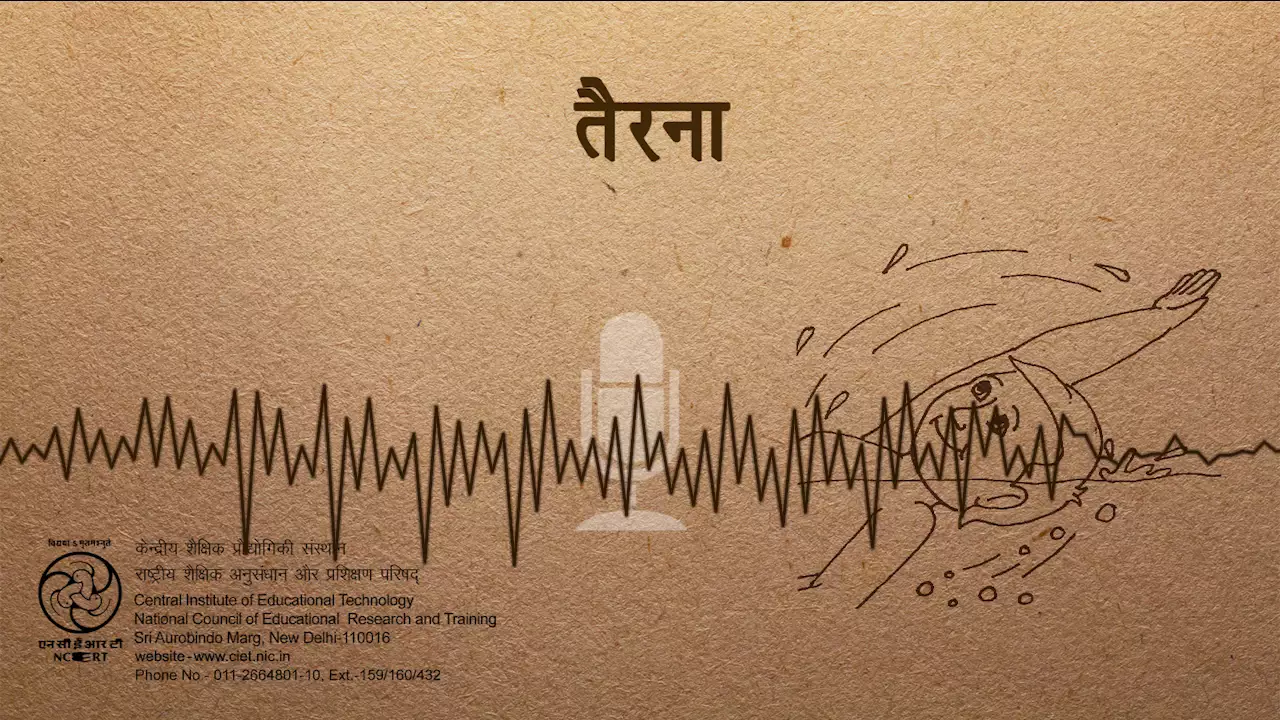 तैरना
विद्यया ऽ मृतमश्नुते
एन सी ई आर टी
NCERT
केन्द्रीय शैक्षिक प्रौद्योगिकी संस्थान
राष्ट्रीय शैक्षिक अनुसंधान और प्रशिक्षण परिषद्
Central Institute of Educational Technology
National Council of Educational Research and Training
Sri Aurobindo Marg, New Delhi-110016
website-www.ciet.nic.in
Phone No - 011-2664801-10, Ext.-159/160/432